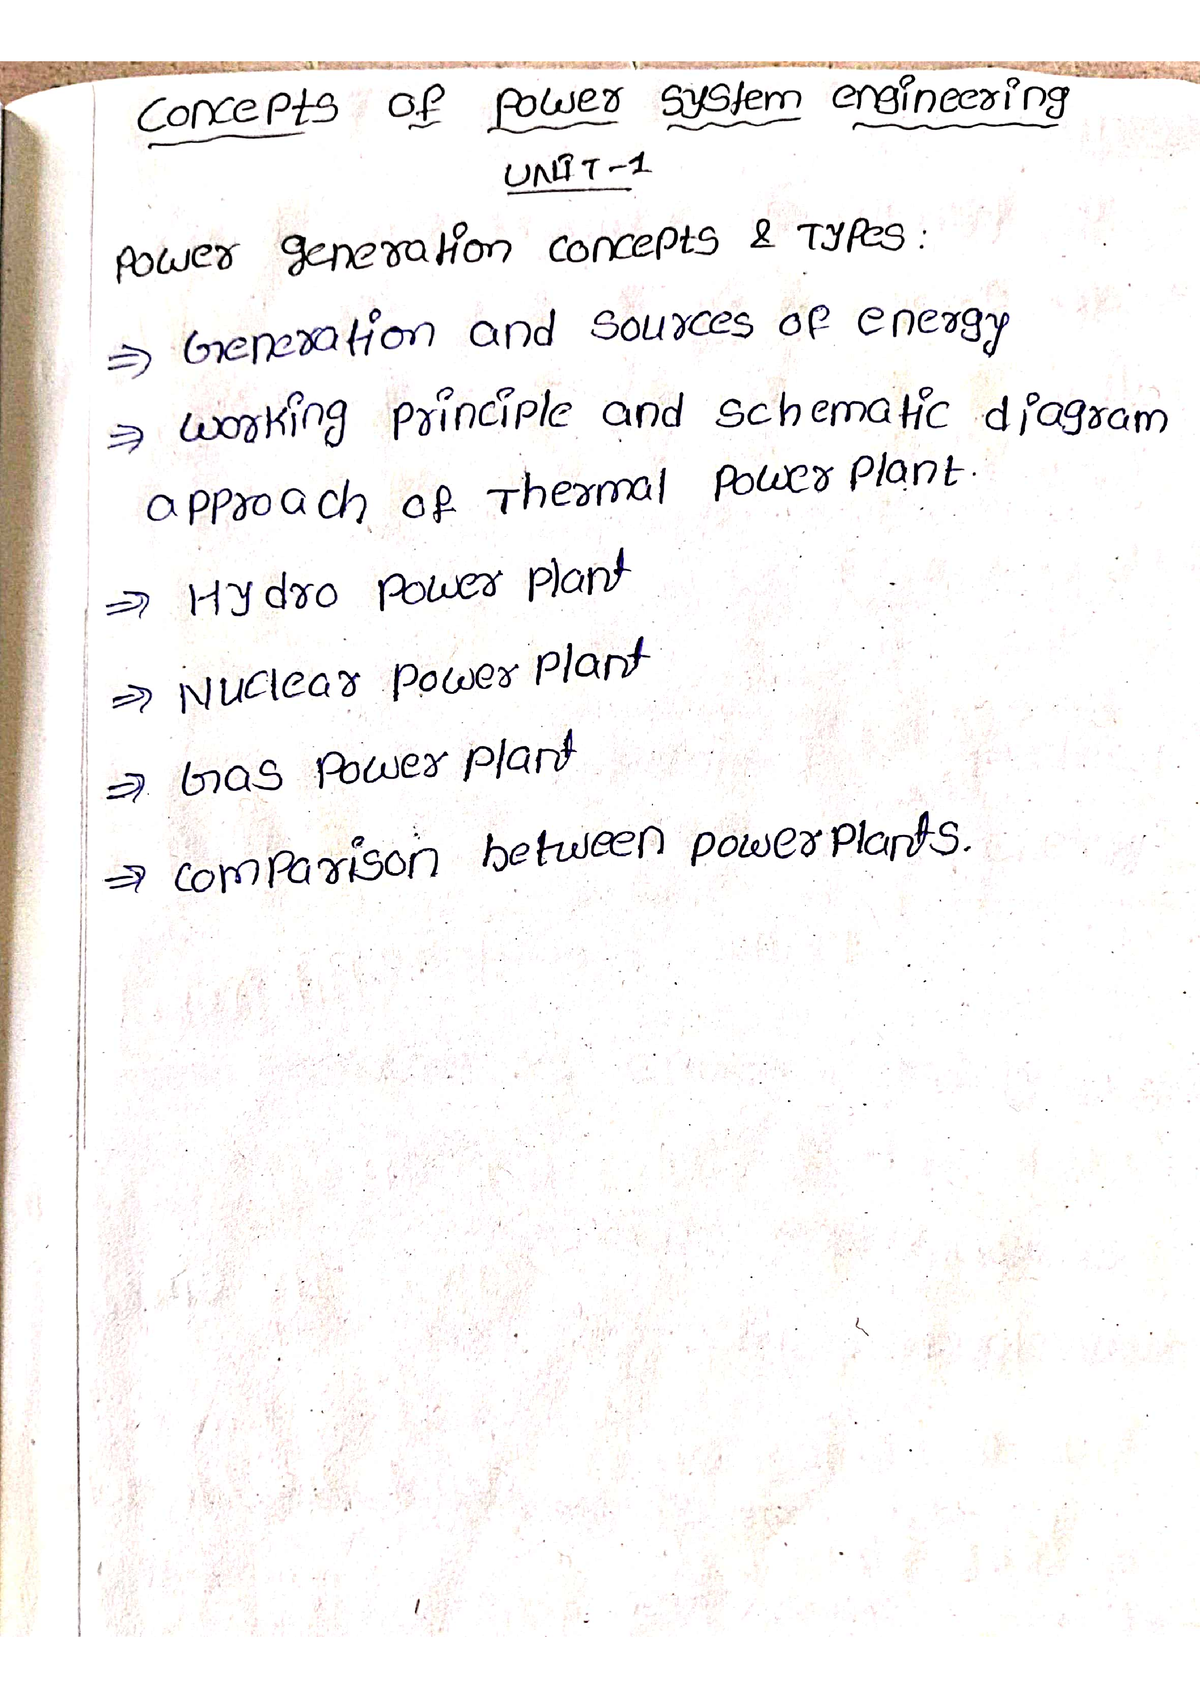 Concepts of Power System engineering
UNIT-1
Power generation concepts & Types:
⇒ Generation and Sources of energy
⇒ working principle and schematic diagram
approach of Thermal Power Plant.
⇒ Hydro Power Plant
⇒ Nuclear Power Plant
⇒ Gas Power Plant
⇒ comparison between power Plants.